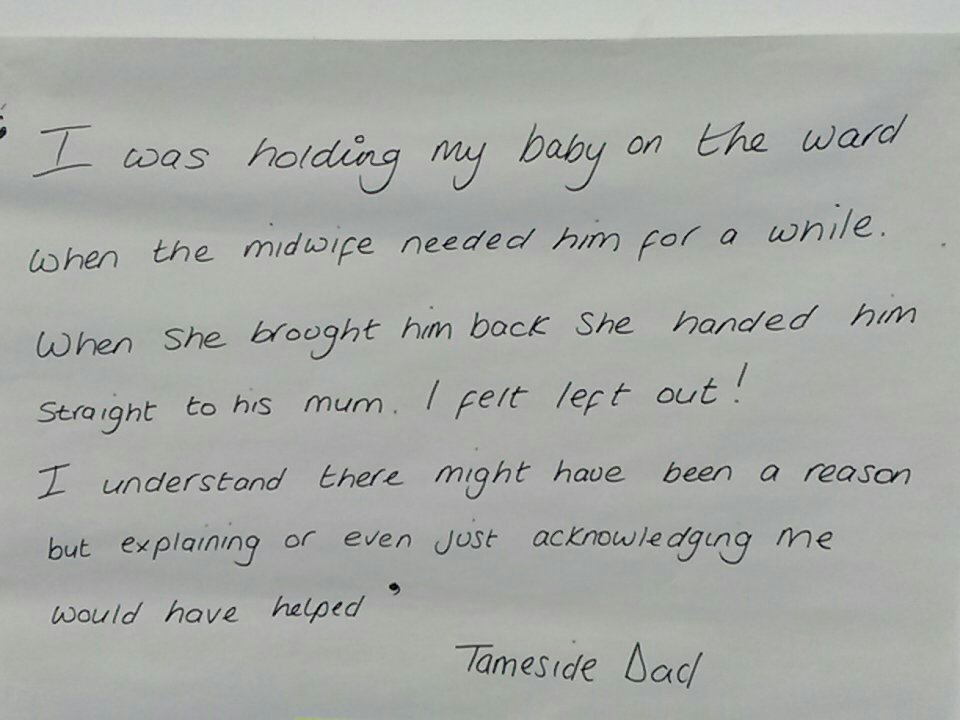 ‘ I was holding my baby on the ward
when the midwife needed him for a while.
When she brought him back she handed him
straight to his mum. I felt left out!
I understand there might have been a reason
but explaining or even just acknowledging me
would have helped ’
Tameside Dad